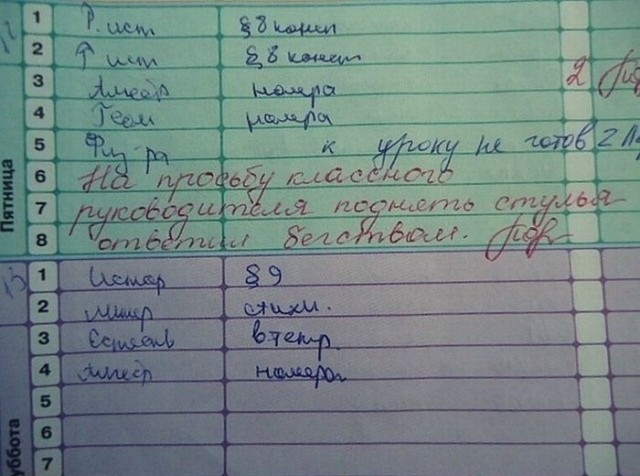 1 Р. ист § 8 консп
2 Р ист § 8 конст
3 Алгебр номера 2
4 Геом номера
5 Физ-ра к уроку не готов 2
6 На просьбу классного
7 руководителя поднять стулья
8 ответил бегством.
Пятница
1 Истор § 9
2 Литер стихи.
3 Естеств в тетр
4 Алгебр номера
5
6
7
суббота